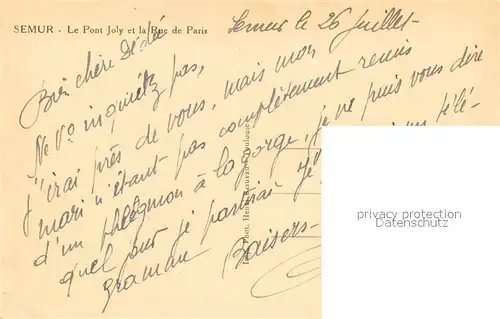 SEMUR - Le Pont Joly et la Rue de Paris
Semur le 26 Juillet -
Bien chéri Dédé
Ne vs inquiétz pas,
j'irai près de vous, mais mon
mari n'étant pas complètement remis
d'un phlegmon à la gorge, je ne puis vous dire
quel jour je partirai
télé-
gramme
Baisers -
privacy protection
watermark